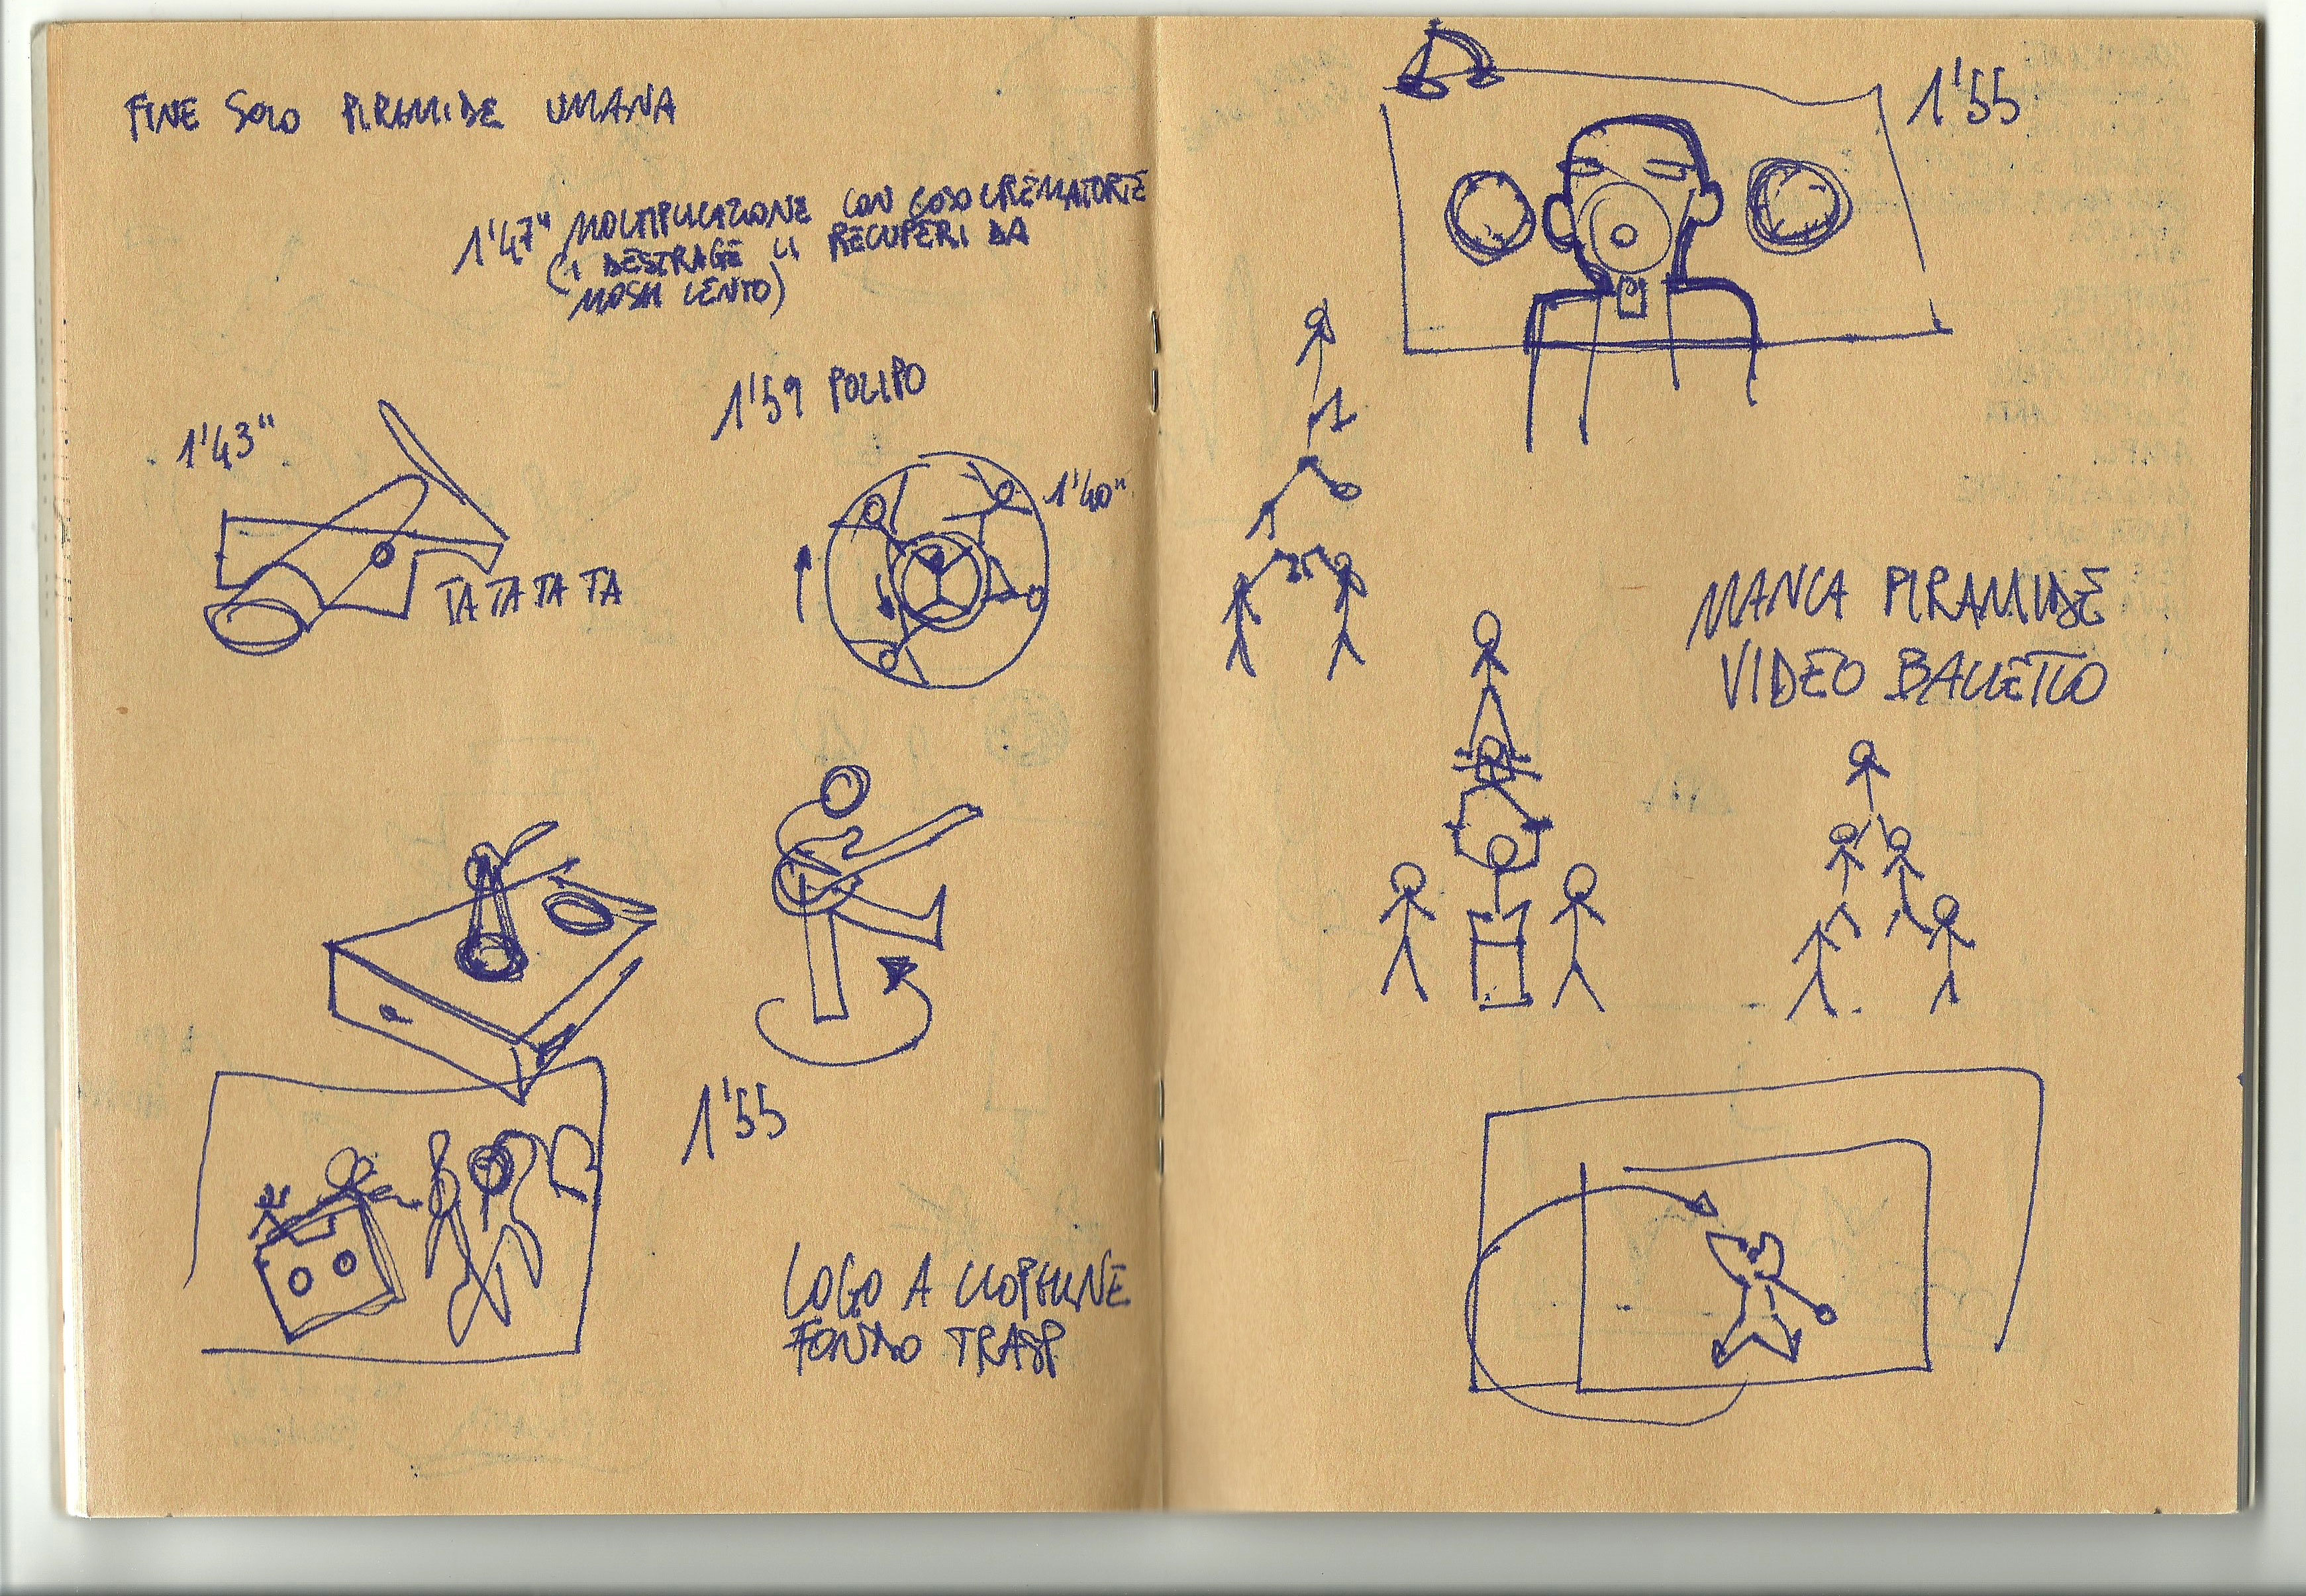 FINE SOLO PIRAMIDE UMANA
1'47" MOLTIPLICAZIONE CON
(I DESTRAGE LI RECUPERI DA
MOSH LENTO)
1'43"
1'59 POLIPO
1'40"
TA TA TA TA
1'55
LOGO A
FONDO TRASP
1'55
MANCA PIRAMIDE
VIDEO BALLETTO